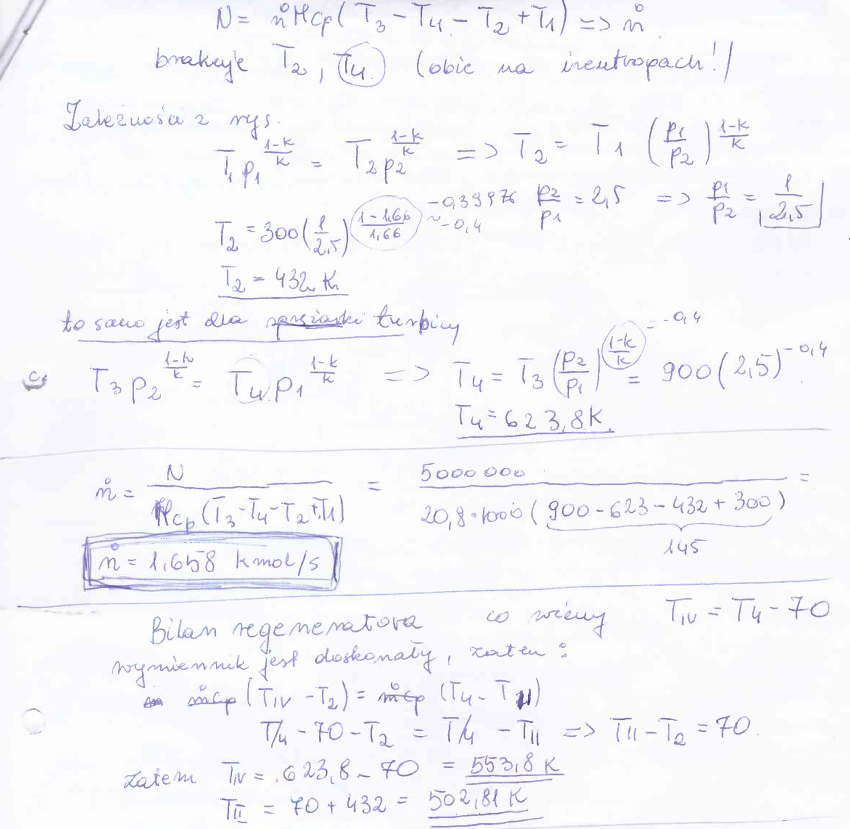 N = ṅ Mcp ( T3 - T4 - T2 + T1 ) => ṅ
brakuje T2, T4 (obie na izentropach!)
Zależności z rys.
T1 p1^(1-k/k) = T2 p2^(1-k/k) => T2 = T1 (p1/p2)^(1-k/k)
T2 = 300 (1/2,5)^(1-1,66/1,66) -0,39976 ~ -0,4 p2/p1 = 2,5 => p1/p2 = 1/2,5
T2 = 432 K
to samo jest dla turbiny
T3 p2^(1-k/k) = T4 p1^(1-k/k) => T4 = T3 (p2/p1)^(1-k/k) = -0,4 = 900 (2,5)^-0,4
T4 = 623,8 K.
ṅ = N / Mcp (T3 - T4 - T2 + T1) = 5000 000 / 20,8 · 1000 (900 - 623 - 432 + 300) =
145
ṅ = 1,658 kmol/s
Bilan regeneratora co wiemy TIV = T4 - 70
wymiennik jest doskonały, zatem :
ṁcp (TIV - T2) = ṁcp (T4 - TII)
T4 - 70 - T2 = T4 - TII => TII - T2 = 70
zatem TIV = 623,8 - 70 = 553,8 K
TII = 70 + 432 = 502,81 K